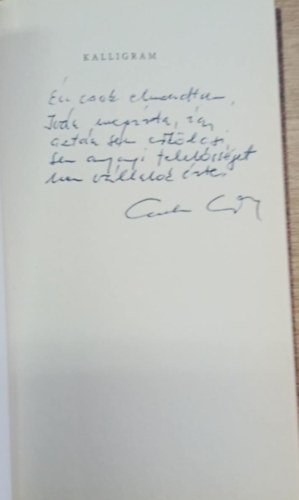 KALLIGRAM
Én csak elmondtam,
Iván megírta, így
aztán sem erkölcsi,
sem anyagi felelősséget
nem vállalok érte.